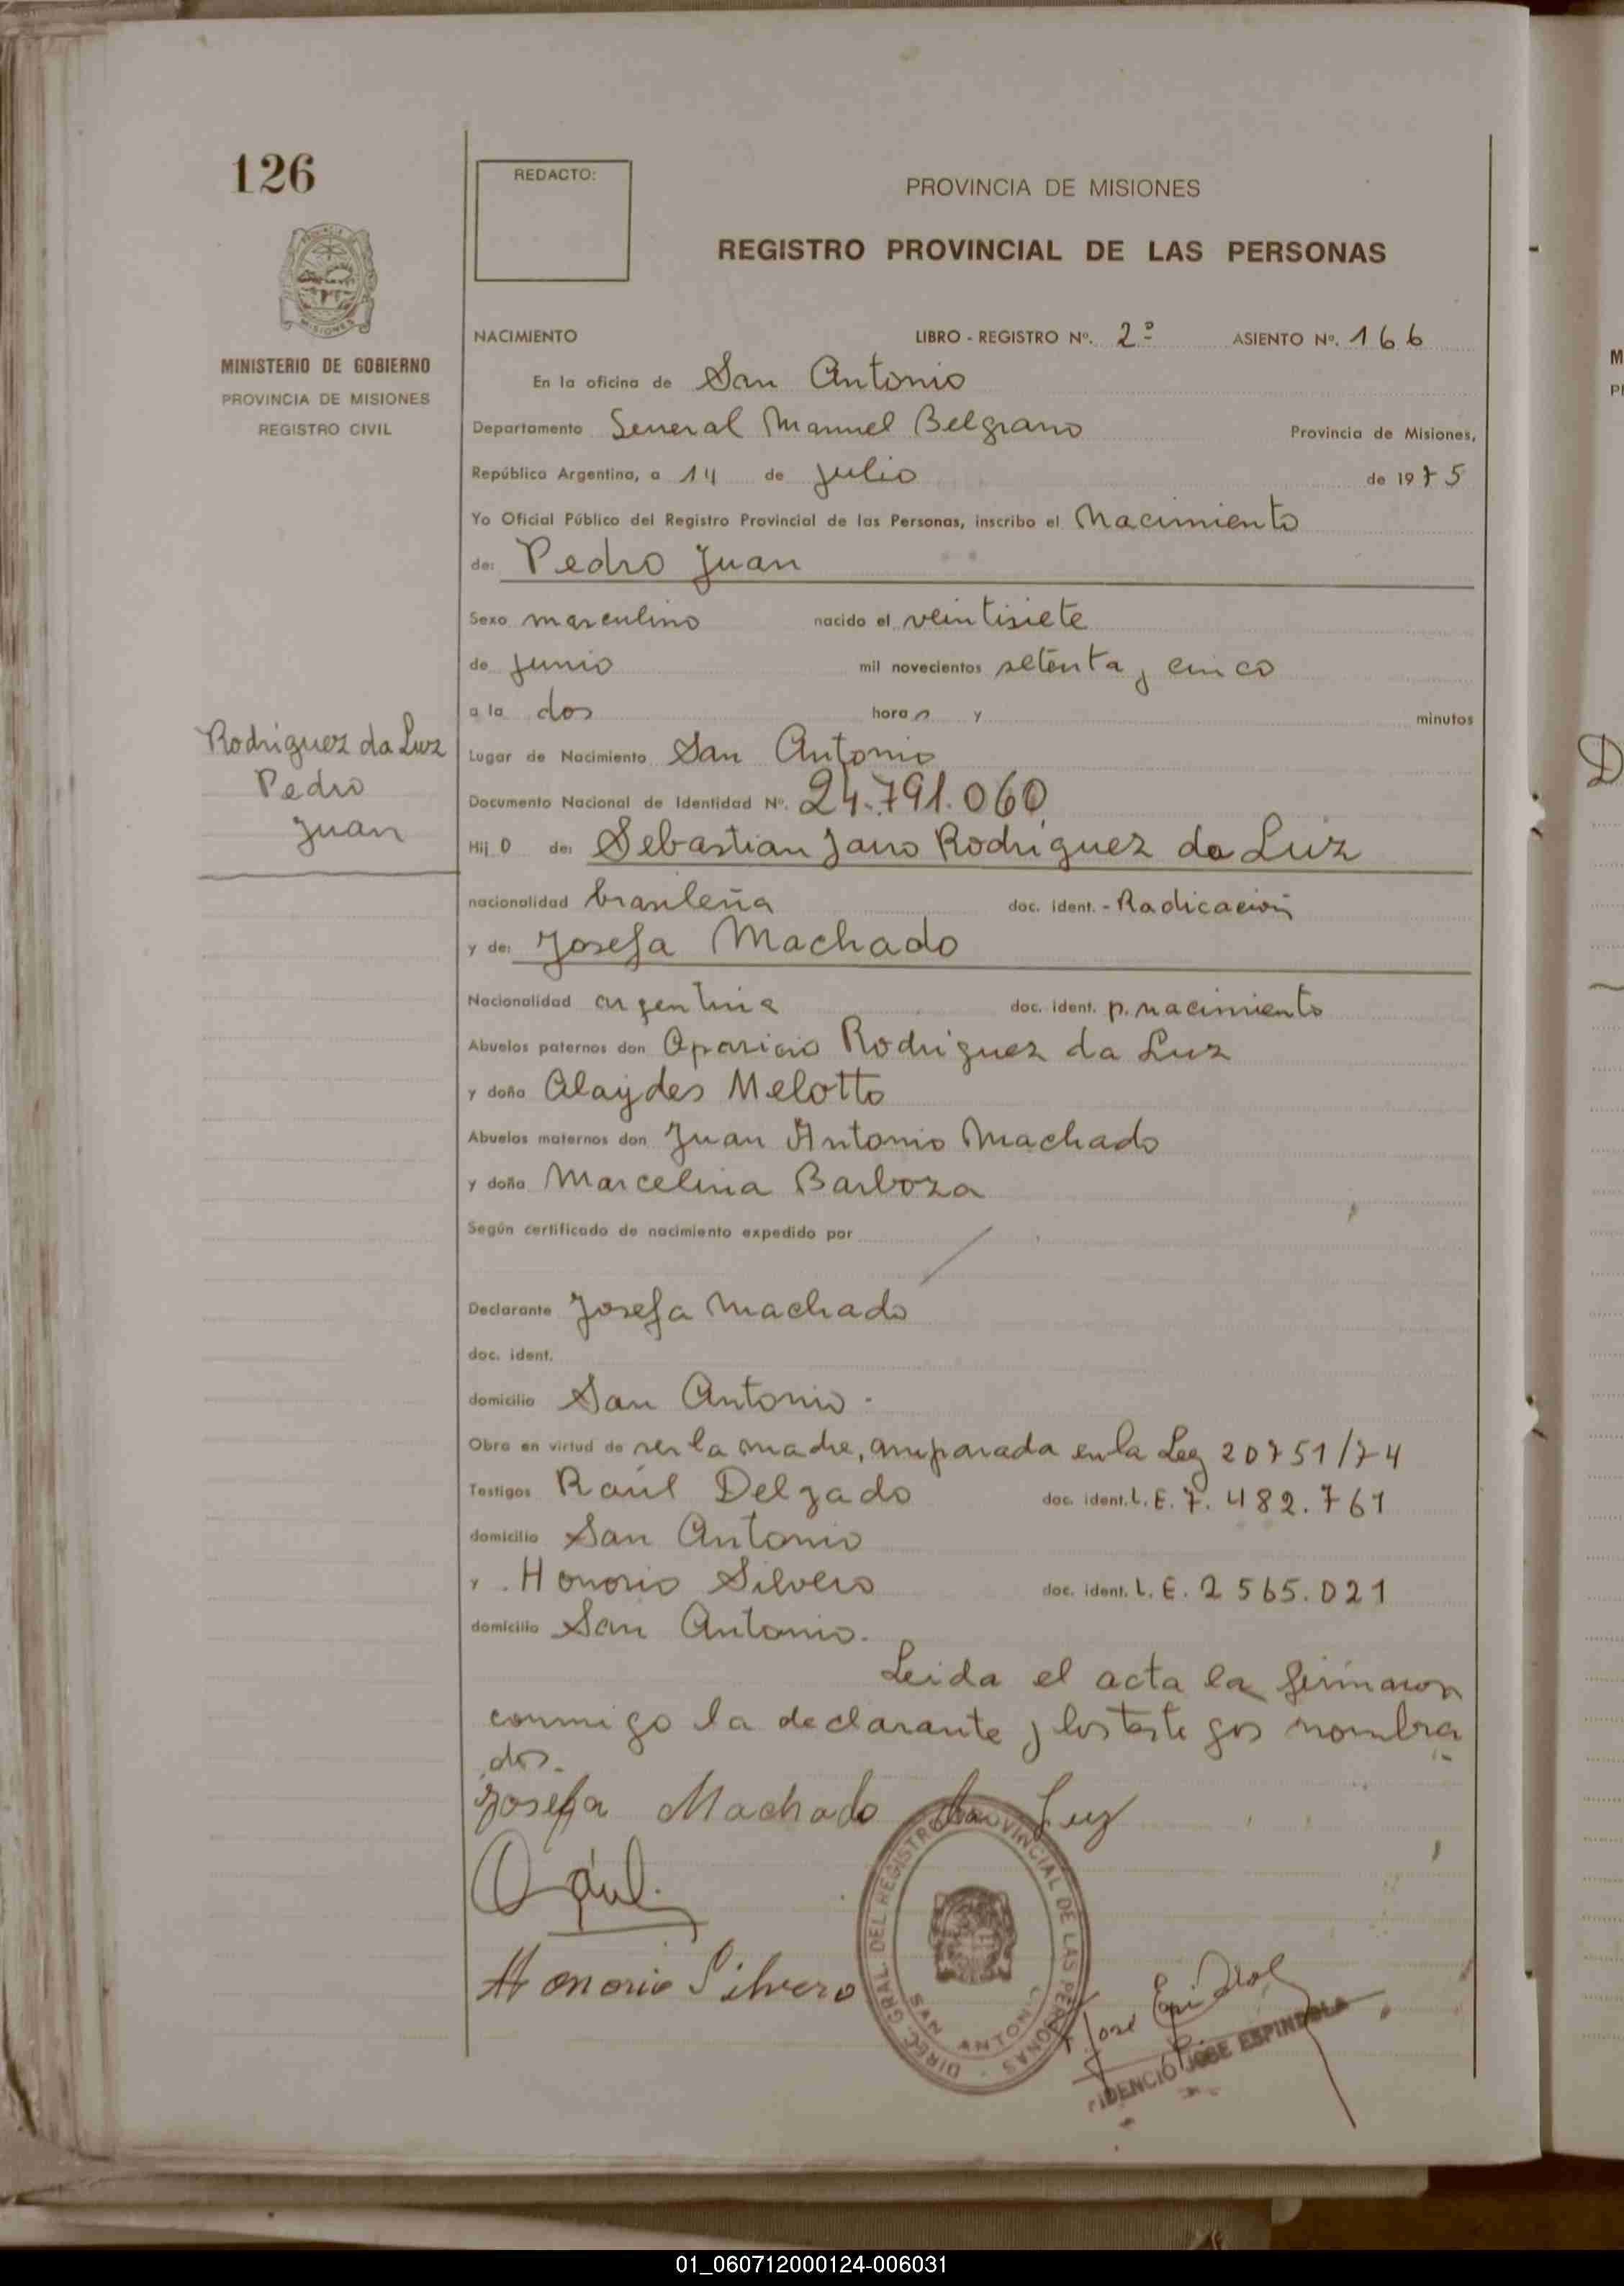 126
REDACTO:
PROVINCIA DE MISIONES
REGISTRO PROVINCIAL DE LAS PERSONAS
MISIONES
MINISTERIO DE GOBIERNO
PROVINCIA DE MISIONES
REGISTRO CIVIL
NACIMIENTO LIBRO - REGISTRO Nº. 2º ASIENTO Nº. 166
En la oficina de San Antonio
Departamento General Manuel Belgrano Provincia de Misiones,
República Argentina, a 14 de Julio de 1975
Yo Oficial Público del Registro Provincial de las Personas, inscribo el Nacimiento
de: Pedro Juan
Sexo masculino nacido el veintisiete
de Junio mil novecientos setenta y cinco
a la dos horas y minutos
Rodriguez da Luz
Pedro
Juan
Lugar de Nacimiento San Antonio
Documento Nacional de Identidad Nº. 24.791.060
Hijo de: Sebastian Jano Rodriguez da Luz
nacionalidad brasileña doc. ident. - Radicación
y de: Josefa Machado
Nacionalidad argentina doc. ident. p. nacimiento
Abuelos paternos don Aparicio Rodriguez da Luz
y doña Alaydes Melotto
Abuelos maternos don Juan Antonio Machado
y doña Marcelina Barboza
Según certificado de nacimiento expedido por
Declarante Josefa Machado
doc. ident.
domicilio San Antonio.
Obra en virtud de ser la madre, amparada en la Ley 20751/74
Testigos Raúl Delgado doc. ident. L. E. 7.482.761
domicilio San Antonio
y Honorio Silvero doc. ident. L. E. 2565.021
domicilio San Antonio.
Leida el acta la firmaron
conmigo la declarante y los testigos nombra
dos.
Josefa Machado da Luz
Honorio Silvero
DIREC. GRAL. DEL REGISTRO PROVINCIAL DE LAS PERSONAS
SAN ANTONIO
José Espindola
FIDENCIO JOSE ESPINDOLA
01_060712000124-006031